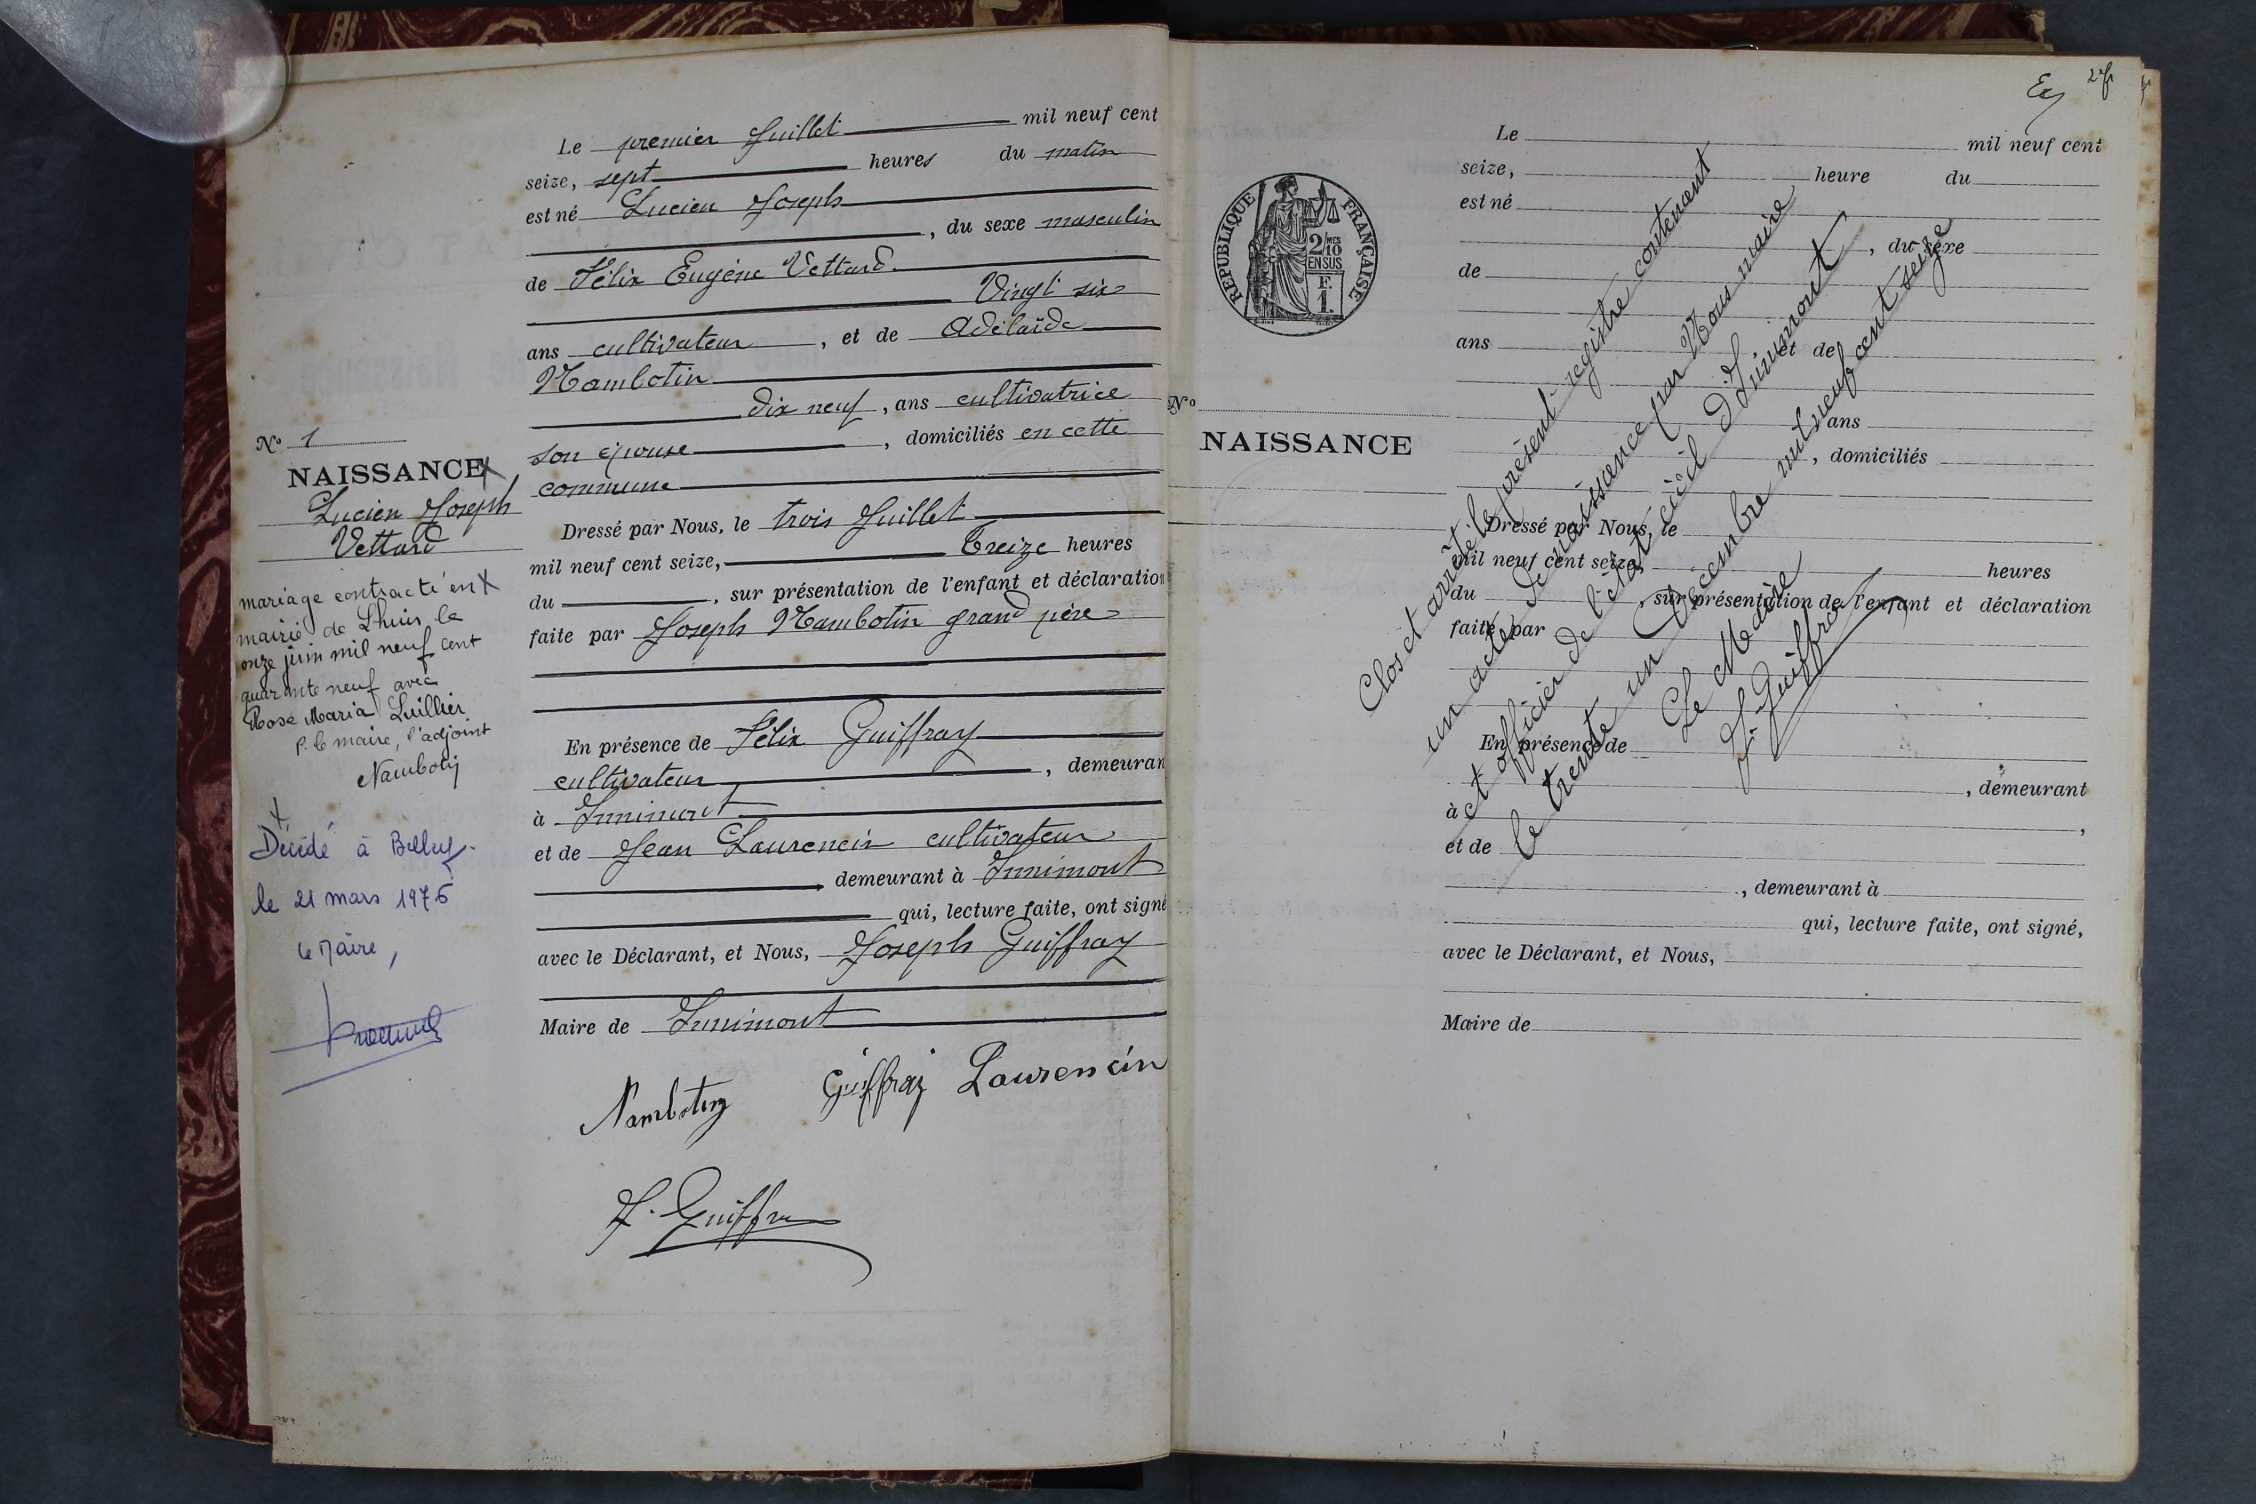 Le premier Juillet mil neuf cent
seize, sept heures du matin
est né Lucien Joseph
, du sexe masculin
de Félix Eugène Vettard
Vingt six
ans cultivateur, et de Adélaïde
Nambotin
dix neuf, ans cultivatrice
son épouse, domiciliés en cette
commune
Dressé par Nous, le trois Juillet
mil neuf cent seize, Treize heures
du , sur présentation de l'enfant et déclaration
faite par Joseph Nambotin grand père
En présence de Félix Guiffray
cultivateur, demeuran
à Innimont
et de Jean Laurencin cultivateur
demeurant à Innimont
qui, lecture faite, ont signé
avec le Déclarant, et Nous, Joseph Guiffray
Maire de Innimont
Nambotin Guiffray Laurencin
J. Guiffray
No 1
NAISSANCE X
Lucien Joseph
Vettard
mariage contracté en X
mairie de Lhuis le
onze juin mil neuf cent
quarante neuf avec
Rose Maria Luillier
P. le maire, l'adjoint
Nambotin
X
Décédé à Belley
le 21 mars 1976
Le Maire,
2
RÉPUBLIQUE FRANÇAISE
2/10 MES
EN SUS
F.
1.
No
NAISSANCE
Le mil neuf cent
seize, heure du
est né
, du sexe
de
ans et de
ans
, domiciliés
Dressé par Nous, le
mil neuf cent seize, heures
du , sur présentation de l'enfant et déclaration
faite par
En présence de
, demeurant
à ,
et de
, demeurant à
qui, lecture faite, ont signé,
avec le Déclarant, et Nous,
Maire de
Clos et arrêté le présent registre contenant
un acte de naissance par Nous maire
et officier de l'état civil d'Innimont
le trente un Décembre mil neuf cent seize
Le Maire
J. Guiffray